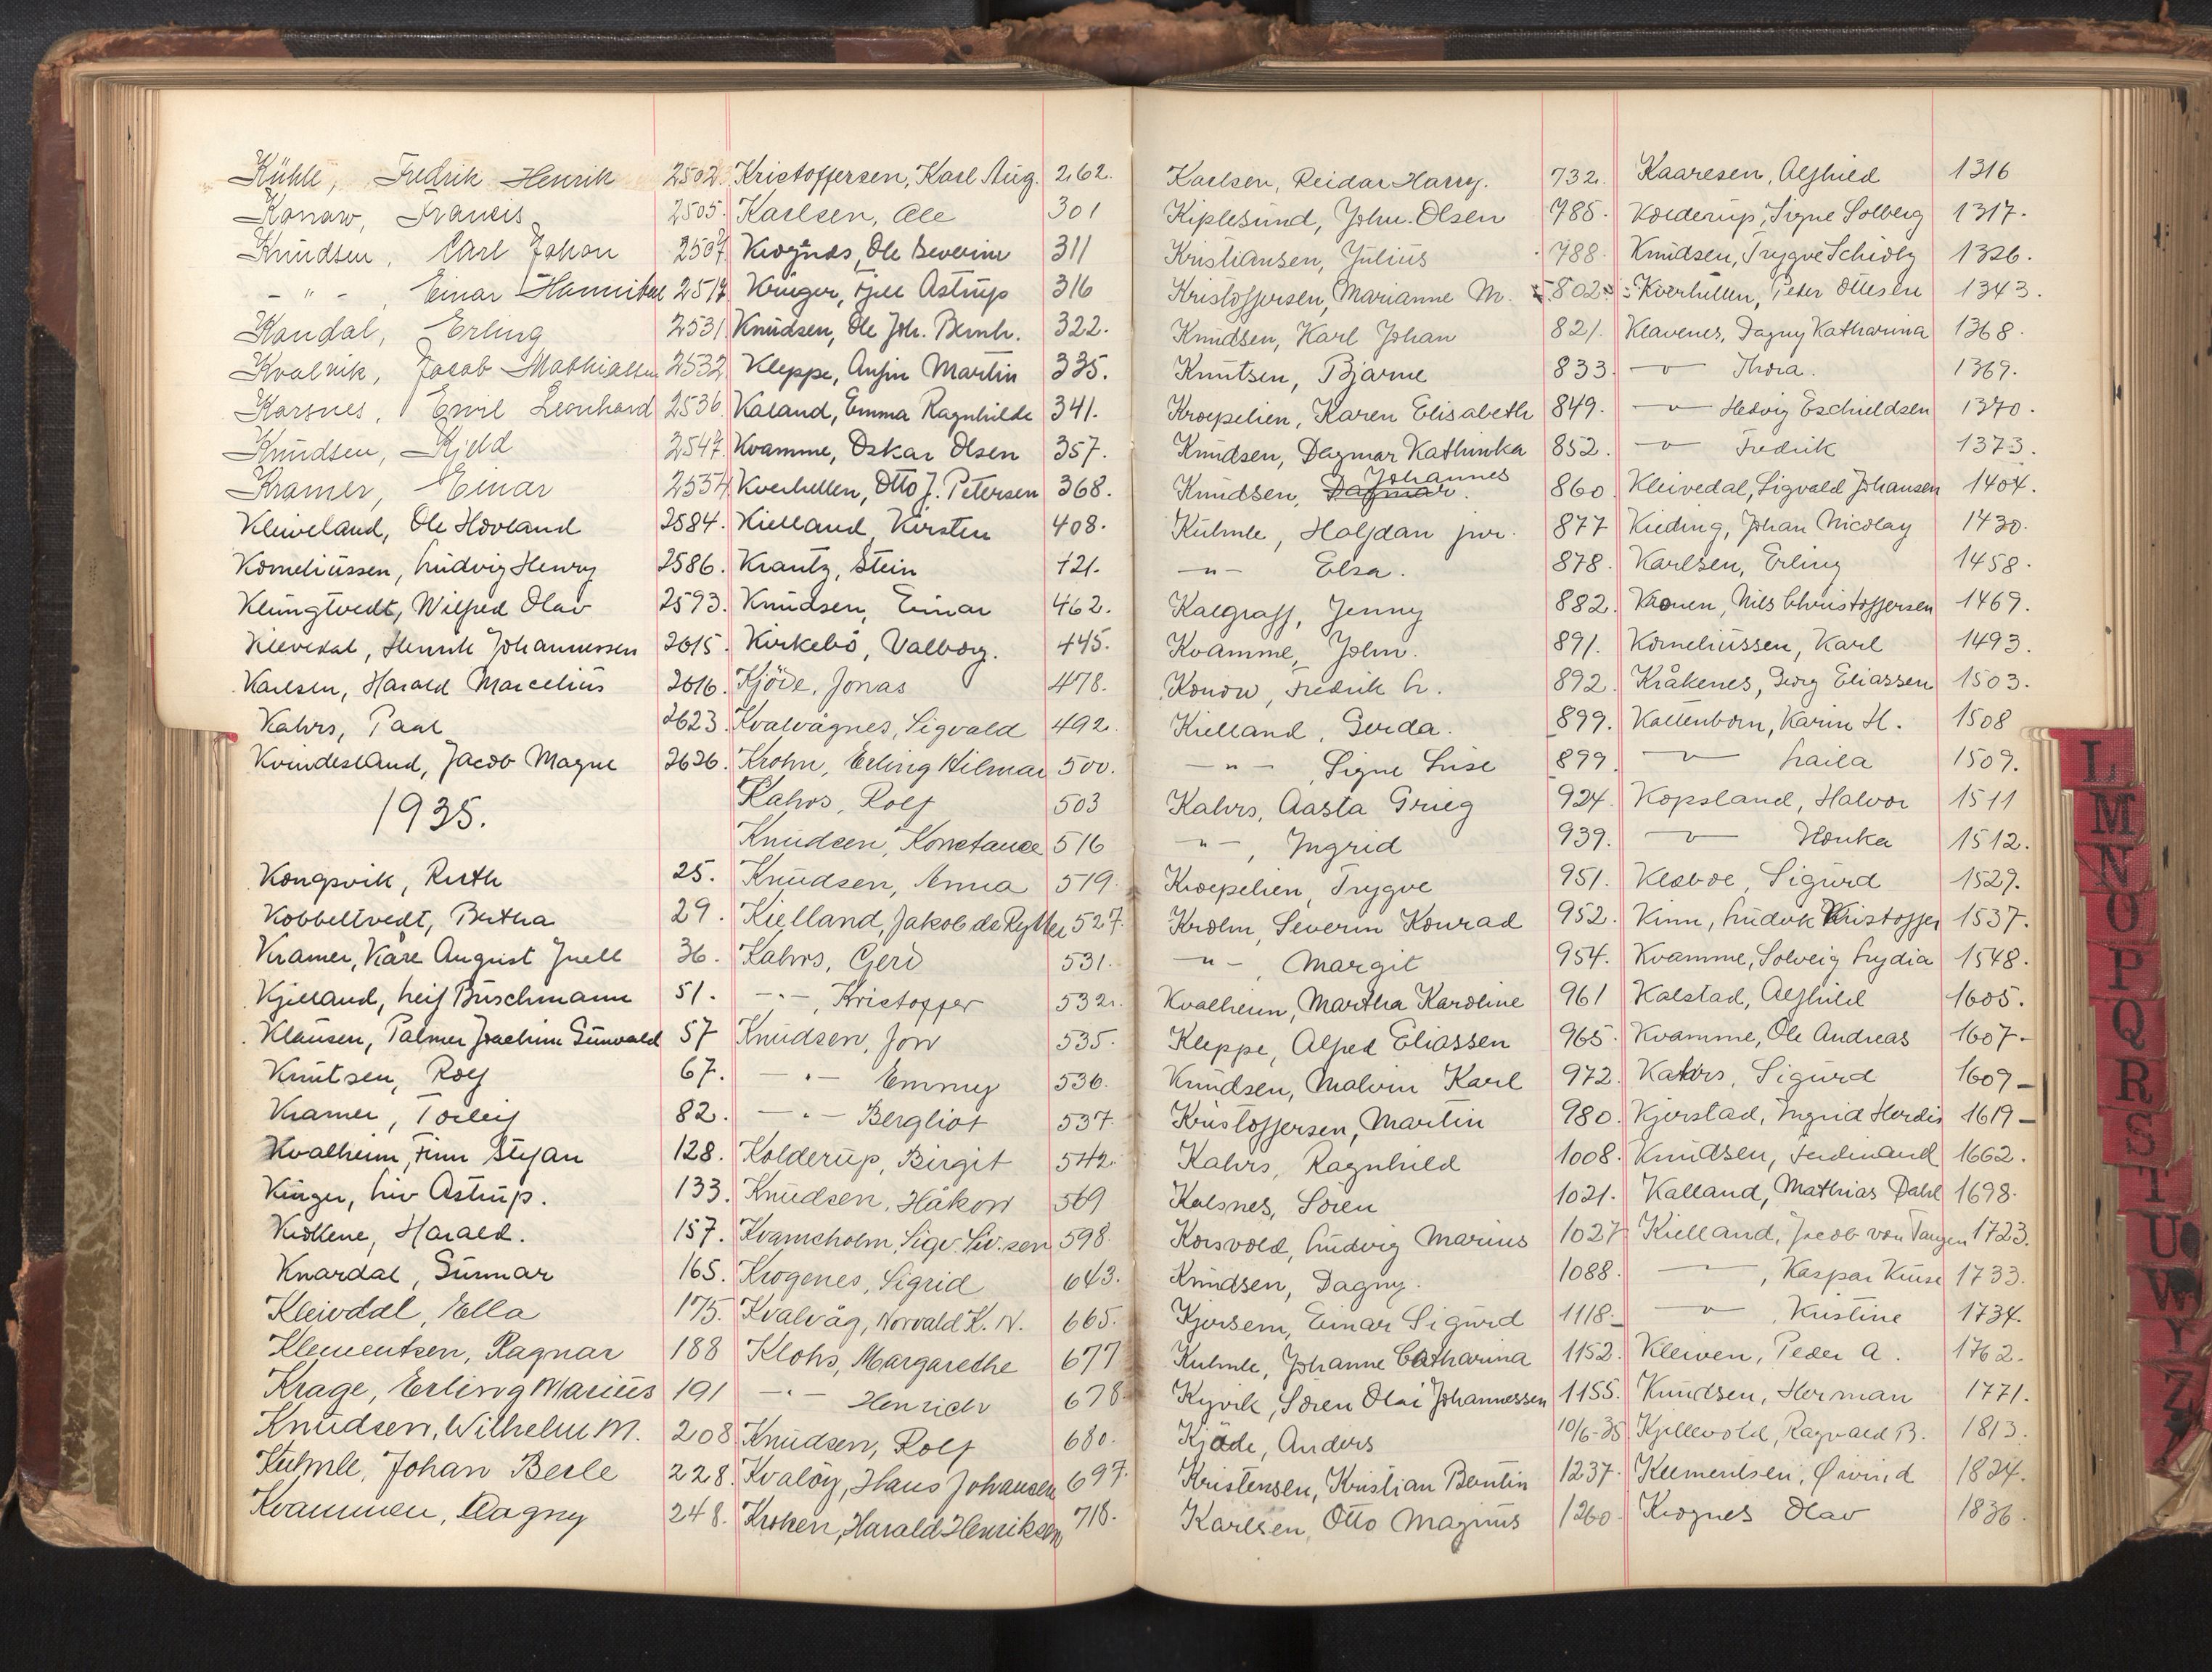 Kühle, Fredrik Henrik 2502.
Konow, Francis 2505.
Knudsen, Carl Johan 2507
- " - , Einar Hannibal 2517
Kandal, Erling 2531
Kvalvik, Jacob Mathiassen 2532
Korsnes, Emil Leonhard 2536
Knudsen, Kjeld 2547
Kramer, Einar 2557
Kleiveland, Ole Hovland 2584.
Korneliussen, Ludvig Henry 2586.
Klungtvedt, Wilfred Olav 2593.
Klevedal, Henrik Johannessen 2615.
Karlsen, Harald Marcelius 2616.
Kahrs, Paal 2623.
Kvindesland, Jacob Magne 2626.
1935.
Kongsvik, Ruth 25.
Kobbeltvedt, Bertha 29.
Kramer, Kåre August Juell 36.
Kjelland, Leif Buschmann 51.
Klausen, Palmer Joachim Gunvald 57
Knutsen, Rolf 67.
Kramer, Torleif 82.
Kvalheim, Finn Stefan 128.
Krüger, Liv Astrup. 133.
Harald. 157.
Knardal, Gunnar 165.
Kleivdal, Ella 175.
Klementsen, Ragnar 188
Krage, Erling Marius 191
Knudsen, Wilhelm M. 208
Kuhnle, Johan Berle 228.
Kvammen, Dagny 248.
Kristoffersen, Karl Aug. 262.
Karlsen, Ole 301
Krognes, Ole Severin 311
Krüger, Astrup 316
Knudsen, Ole Joh. Bernh. 322.
Kleppe, Anfin Martin 335.
Kaland, Emma Ragnhilde 341.
Kvamme, Oskar Olsen 357.
Kverhellen, Otto J. Petersen 368.
Kielland, Kirsten 408.
Krantz, Stein 421.
Knudsen, Einar 462.
Kirkebö, Valborg. 445.
Kjöde, Jonas 478.
Kvalvågnes, Sigvald 492
Krohn, Erling Hilmar 500.
Kahrs, Rolf 503
Knudsen, Konstance 516
Knudsen, Anna 519.
Kielland, Jakob de Rytter 527.
Kahrs, Gerd 531.
- " - , Kristoffer 532.
Knudsen, Jon 535.
- " - Emmy 536.
- " - Bergliot 537.
Kolderup, Birgit 542.
Knudsen, Håkon 569
Kvamsholm, Sigv. Siv.sen 598.
Krogenes, Sigrid 643.
Kvalvåg, Norvald K. N. 665.
Klohs, Margarethe 677
- " - Henrich 678.
Knudsen, Rolf 680.
Kvalöy, Hans Johansen 697.
Kroken, Harald Henriksen 718.
Karlsen, Reidar Harry. 732.
Kiplesund, John Olsen 785.
Kristiansen, Julius 788.
Kristoffersen, Marianne M. 802
Knudsen, Karl Johan 821.
Knutsen, Bjarne 833.
Kroepelien, Karen Elisabeth 849.
Knudsen, Dagmar Kathinka 852.
Johannes
Knudsen, Dagmar. 860.
Kuhnle, Halfdan jun. 877
- " - Elsa. 878.
Kalgraff, Jenny 882.
Kvamme, John. 891.
Konow, Fredrik L. 892.
Kielland, Gerda. 899.
- " - , Signe Lise 899.
Kahrs, Aasta Grieg 924.
- " - , Ingrid 939.
Kroepelien, Trygve 951.
Krohn, Severin Konrad 952.
- " - , Margit 954.
Kvalheim, Martha Karoline 961
Kleppe, Alfred Eliassen 965.
Knudsen, Malvin Karl 972.
Kristoffersen, Martin 980.
Kahrs, Ragnhild 1008.
Kalsnes, Sören 1021.
Korsvold, Ludvig Marius 1027
Knudsen, Dagny. 1088.
Kjorsem, Einar Sigurd 1118.
Kuhnle, Johanne Catharina 1152.
Kyvik, Sören Olai Johannessen 1155.
Kjöde, Anders 10/6-35
Kristensen, Kristian Bentin 1237.
Karlsen, Otto Magnus 1260.
Kaaresen, Alfhild 1316
Kolderup, Signe Solberg 1317.
Knudsen, Trygve 1326.
Kverhellen, Peter Ottesen 1343.
Klavenes, Dagny Katharina 1368.
— " — Thora. 1369.
— " — Hedvig Eschildsen 1370.
— " — Fredrik 1373.
Kleivedal, Sigvald Johansen 1404.
Kieding, Johan Nicolay 1430.
Karlsen, Erling 1458.
Kronen, Nils Christoffersen 1469.
Korneliussen, Karl 1493.
Kråkenes, Georg Eliassen 1503.
Kaltenborn, Karin H. 1508
— " — Laila 1509.
Kopsland, Halvor 1511
— " — 1512.
Klæboe, Sigurd 1529.
Kinn, Ludvik Kristoffer 1537.
Kvamme, Solveig Lydia 1548.
Kalstad, Alfhild 1605.
Kvamme, Ole Andreas 1607-
Kahrs, Sigurd 1609-
Kjerstad, Ingrid Herdis 1619-
Knudsen, Ferdinand 1662.
Kalland, Mathias Dahl 1698.
Kielland, Jacob von Tangen 1723.
— " — , Kaspar Kruse 1733.
— " — , Kristine 1734.
Kleiven, Peder A. 1762.
Knudsen, Herman 1771.
Kjellevold, Ragvald B. 1813.
Klementsen, Øivind 1824.
Krognes Olav 1836.
L
M
N
O
P
Q
R
S
T
U
W
Y
Z